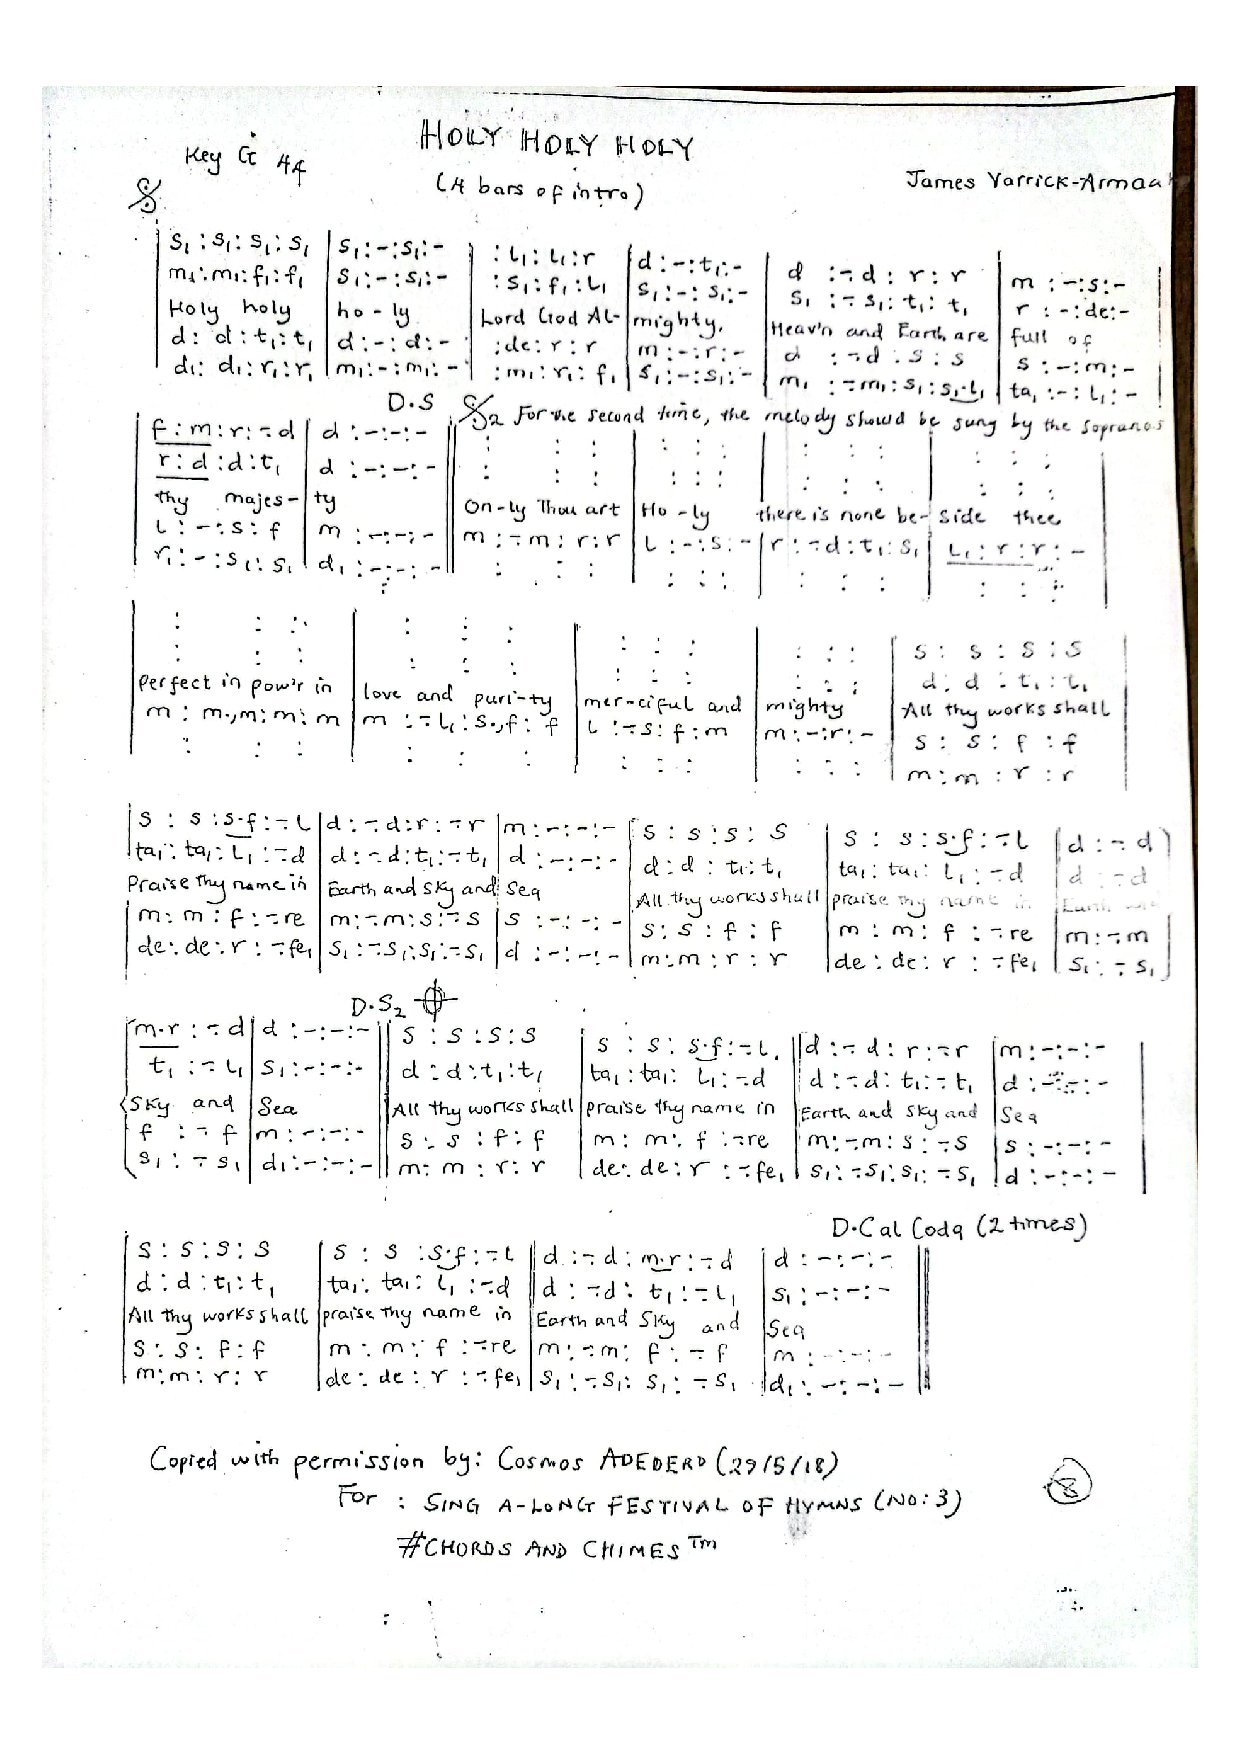 HOLY HOLY HOLY
Key G 44
(4 bars of intro)
James Varrick-Armaa
S₁ : S₁ : S₁ : S₁ | S₁ : - : S₁ : - | : L₁ : L₁ : r | d : - : t₁ : - | d : -. d : r : r | m : - : s : -
m₁ : m₁ : f₁ : f₁ | S₁ : - : S₁ : - | : S₁ : f₁ : L₁ | S₁ : - : S₁ : - | S₁ : -. S₁ : t₁ : t₁ | r : - : de : -
Holy holy | ho - ly | Lord God Al- | mighty, | Heav'n and Earth are | full of
d : d : t₁ : t₁ | d : - : d : - | : de : r : r | m : - : r : - | d : -. d : s : s | s : - : m : -
d₁ : d₁ : r₁ : r₁ | m₁ : - : m₁ : - | : m₁ : r₁ : f₁ | S₁ : - : S₁ : - | m₁ : -. m₁ : S₁ : S₁. L₁ | ta₁ : - : L₁ : -
D.S 𝄋2 For the second time, the melody should be sung by the sopranos
f : m : r : -. d | d : - : - : - ‖ : : : | : : : | : : : | : : :
r : d : d : t₁ | d : - : - : - ‖ : : : | : : : | : : : | : : :
thy majes- | ty ‖ On-ly Thou art | Ho - ly | there is none be- | side thee
L : - : s : f | m : - : - : - ‖ m : -. m : r : r | L : - : s : - | r : -. d : t₁ : S₁ | L₁ : r : r : -
r₁ : - : S₁ : S₁ | d₁ : - : - : - ‖ : : : | : : : | : : : | : : :
: : : | : : : | : : : | : : : | s : s : s : s
: : : | : : : | : : : | : : : | d : d : t₁ : t₁
Perfect in pow'r in | love and puri-ty | mer-ciful and | mighty | All thy works shall
m : m., m : m : m | m : -. L₁ : s., f : f | L : -. s : f : m | m : - : r : - | s : s : f : f
: : : | : : : | : : : | : : : | m : m : r : r
s : s : s.f : -. L | d : -. d : r : -. r | m : - : - : - | s : s : s : s | s : s : s.f : -. L | d : -. d
ta₁ : ta₁ : L₁ : -. d | d : -. d : t₁ : -. t₁ | d : - : - : - | d : d : t₁ : t₁ | ta₁ : ta₁ : L₁ : -. d | d : -. d
Praise thy name in | Earth and sky and | Sea | All thy works shall | praise thy name in | Earth and
m : m : f : -. re | m : -. m : s : -. s | s : - : - : - | s : s : f : f | m : m : f : -. re | m : -. m
de : de : r : -. fe₁ | S₁ : -. S₁ : S₁ : -. S₁ | d : - : - : - | m : m : r : r | de : de : r : -. fe₁ | S₁ : -. S₁
D.S₂ 𝄌
m.r : -. d | d : - : - : - ‖ s : s : s : s | s : s : s.f : -. L ‖ d : -. d : r : -. r | m : - : - : -
t₁ : -. L₁ | S₁ : - : - : - ‖ d : d : t₁ : t₁ | ta₁ : ta₁ : L₁ : -. d ‖ d : -. d : t₁ : -. t₁ | d : - : - : -
Sky and | Sea ‖ All thy works shall | praise thy name in ‖ Earth and sky and | Sea
f : -. f | m : - : - : - ‖ s : s : f : f | m : m : f : -. re ‖ m : -. m : s : -. s | s : - : - : -
S₁ : -. S₁ | d₁ : - : - : - ‖ m : m : r : r | de : de : r : -. fe₁ ‖ S₁ : -. S₁ : S₁ : -. S₁ | d : - : - : -
D.C al Coda (2 times)
s : s : s : s | s : s : s.f : -. L ‖ d : -. d : m.r : -. d | d : - : - : -
d : d : t₁ : t₁ | ta₁ : ta₁ : L₁ : -. d ‖ d : -. d : t₁ : -. L₁ | S₁ : - : - : -
All thy works shall | praise thy name in ‖ Earth and Sky and | Sea
s : s : f : f | m : m : f : -. re ‖ m : -. m : f : -. f | m : - : - : -
m : m : r : r | de : de : r : -. fe₁ ‖ S₁ : -. S₁ : S₁ : -. S₁ | d₁ : - : - : -
Copied with permission by: Cosmos ADEDERD (29/5/18)
For : SING A-LONG FESTIVAL OF HYMNS (NO: 3)
#CHORDS AND CHIMES™
8